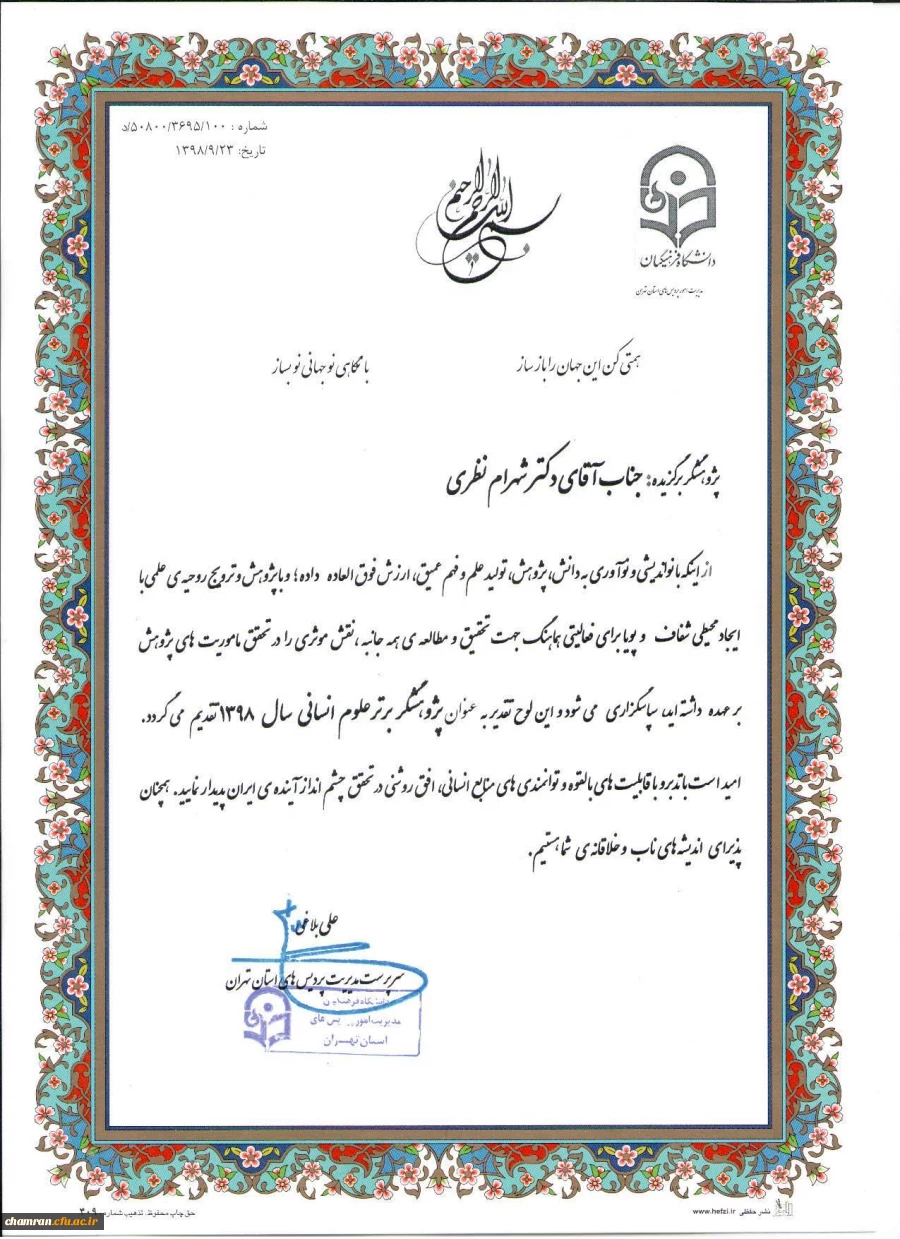 شماره : ۵۰۸۰۰/۳۶۹۵/۱۰۰/د
تاریخ: ۱۳۹۸/۹/۲۳
بسم الله الرحمن الرحیم
دانشگاه فرهنگیان
مدیریت امور پردیس های استان تهران
همتی کن این جهان را باز ساز با نگاهی نو جهانی نو بساز
پژوهشگر برگزیده: جناب آقای دکتر شهرام نظری
از اینکه با نواندیشی و نوآوری به دانش، پژوهش، تولید علم و فهم عمیق، ارزش فوق العاده داده؛ و با پژوهش و ترویج روحیه ی علمی با
ایجاد محیطی شفاف و پویا برای فعالیتی هماهنگ جهت تحقیق و مطالعه ی همه جانبه ، نقش موثری را در تحقق ماموریت های پژوهش
بر عهده داشته اید، سپاسگزاری می شود و این لوح تقدیر به عنوان پژوهشگر برتر علوم انسانی سال ۱۳۹۸ تقدیم می گردد.
امید است با تدبر و با قابلیت های بالقوه و توانمندی های منابع انسانی، افق روشنی در تحقق چشم انداز آینده ی ایران پدیدار نمایید. همچنان
پذیرای اندیشه های ناب و خلاقانه ی شما هستیم.
علی بلاغی
سرپرست مدیریت پردیس های استان تهران
دانشگاه فرهنگیان
مدیریت امور پردیس های
استان تهران
نشر حفظی www.hefzi.ir
حق چاپ محفوظ. تذهیب شماره ۳۰۹
chamran.cfu.ac.ir